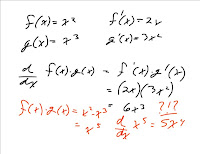 f(x) = x² f'(x) = 2x
g(x) = x³ g'(x) = 3x²
d/dx f(x)g(x) = f'(x)g'(x)
= (2x)(3x²)
f(x)·g(x) = x²·x³ = 6x³ ?!?
= x⁵ d/dx x⁵ = 5x⁴